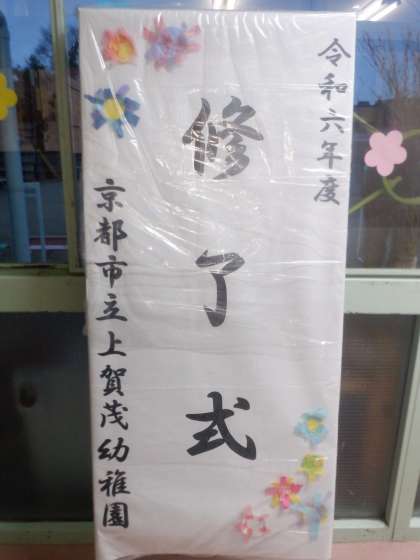 令和六年度
修了式
京都市立上賀茂幼稚園